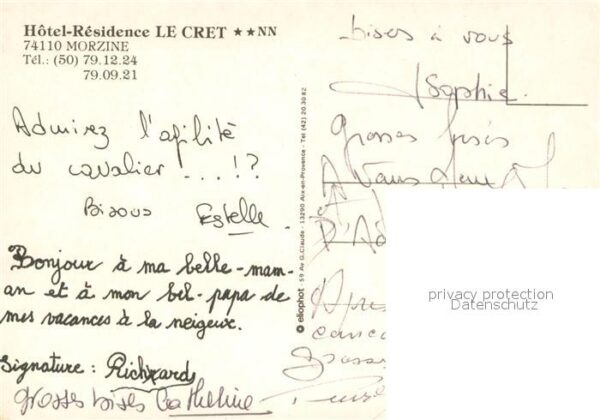 Hôtel-Résidence LE CRET ★★NN
74110 MORZINE
Tél.: (50) 79.12.24
79.09.21
Admirez l'agilité
du cavalier!...!?
Bisous Estelle.
Bonjour à ma belle-mam-
an et à mon bel-papa de
mes vacances à la neigeux.
Signature: Richard
grosses bises Catherine
elliophot 59 Av G.Claude - 13290 Aix-en-Provence - Tél (42) 20 30 82
bises à vous
Sophie.
Grosses
A
D'Ad
Apres
privacy protection
Datenschutz